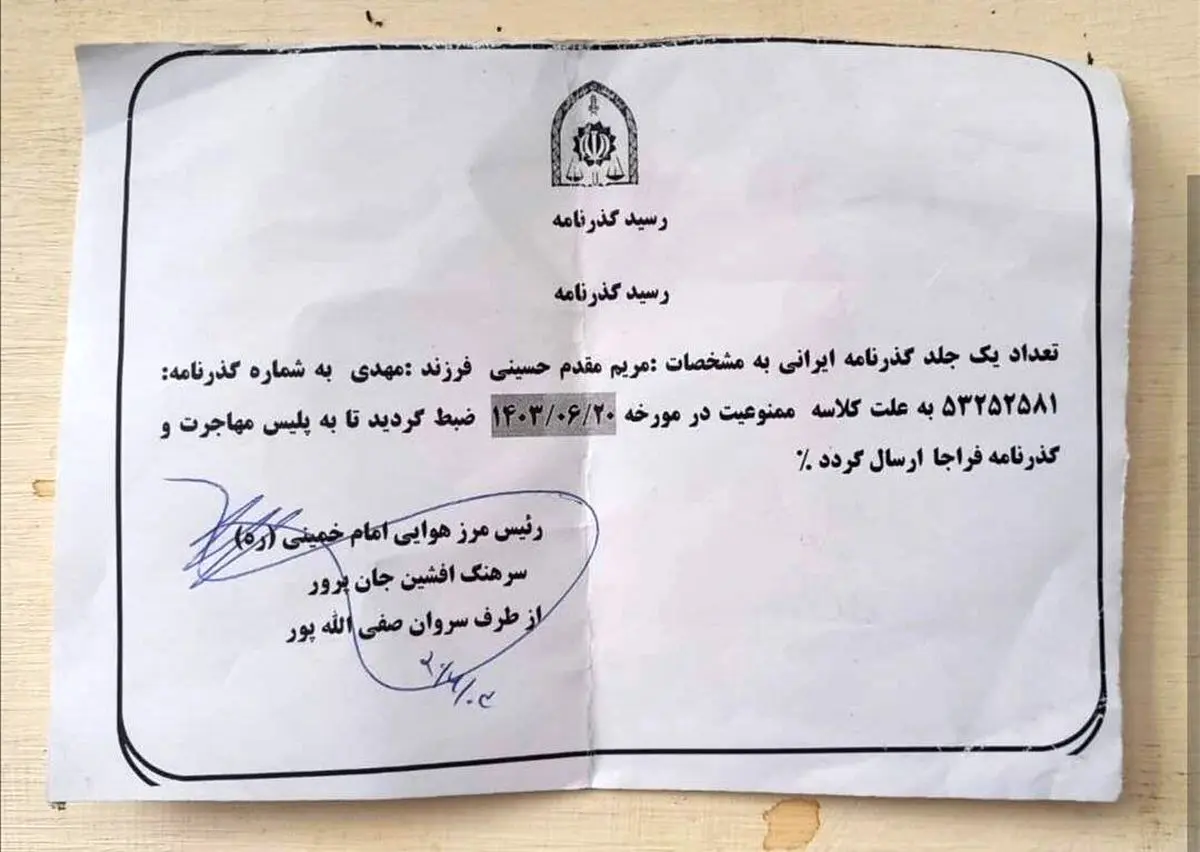 رسید گذرنامه
رسید گذرنامه
تعداد یک جلد گذرنامه ایرانی به مشخصات :مریم مقدم حسینی فرزند :مهدی به شماره گذرنامه:
۵۳۲۵۲۵۸۱ به علت کلاسه ممنوعیت در مورخه ۱۴۰۳/۰۶/۲۰ ضبط گردید تا به پلیس مهاجرت و
گذرنامه فراجا ارسال گردد .٪
رئیس مرز هوایی امام خمینی (ره)
سرهنگ افشین جان پرور
از طرف سروان صفی الله پور